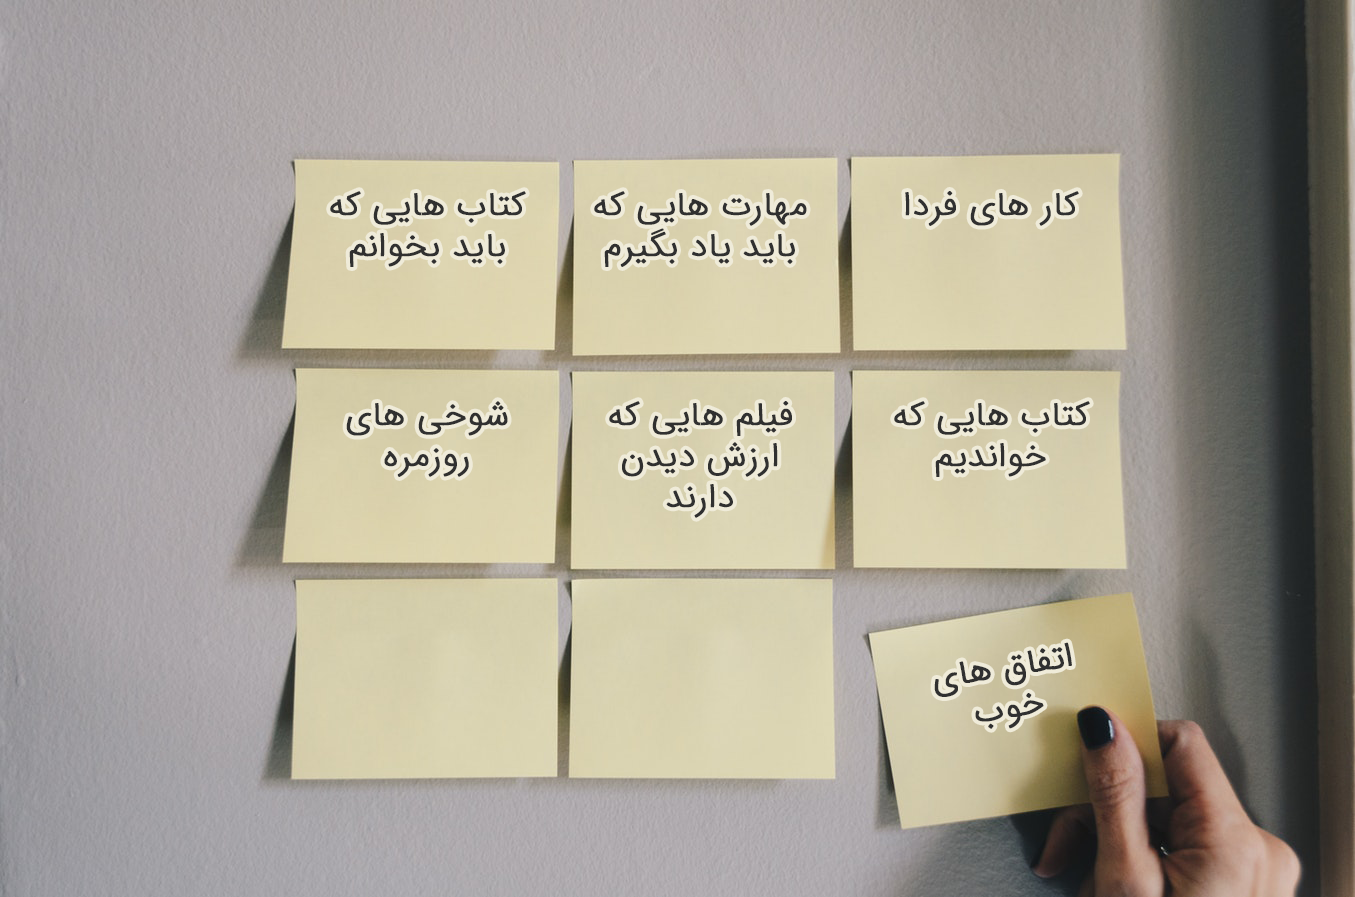 کار های فردا
مهارت هایی که
باید یاد بگیرم
کتاب هایی که
باید بخوانم
کتاب هایی که
خواندیم
فیلم هایی که
ارزش دیدن
دارند
شوخی های
روزمره
اتفاق های
خوب